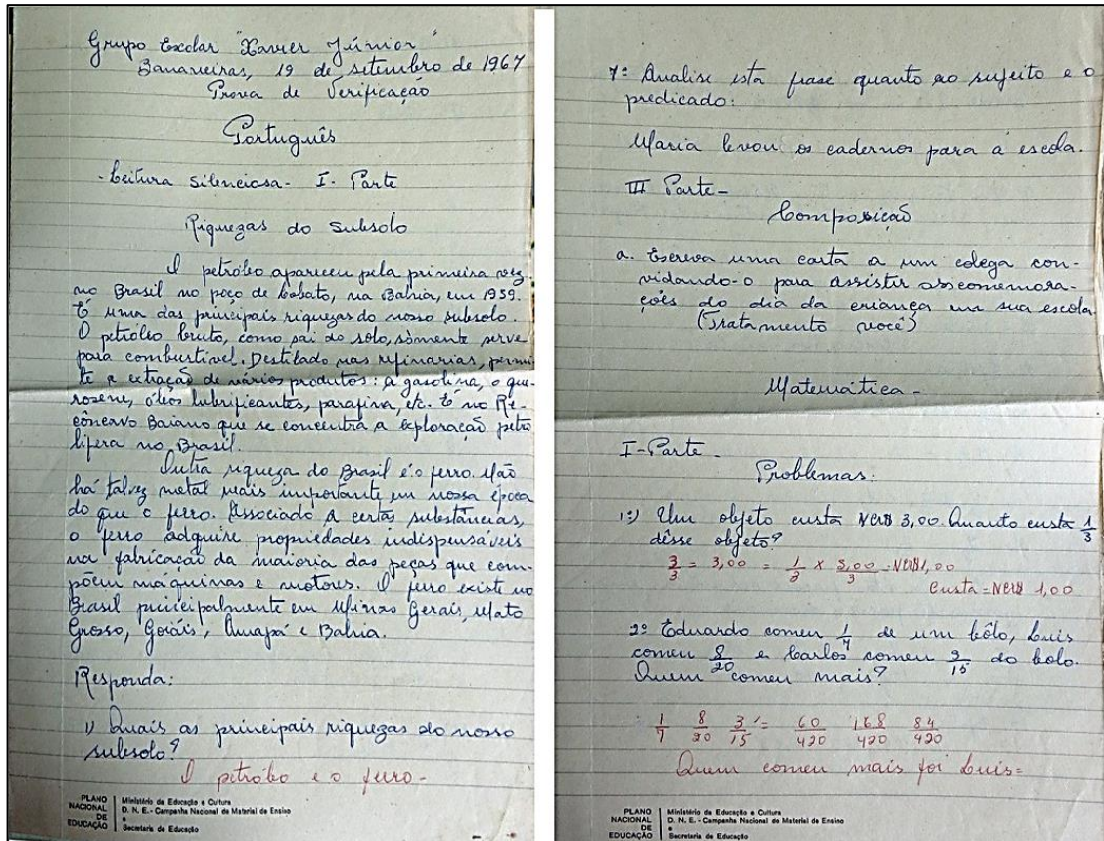 Grupo Escolar "Xavier Júnior"
Bananeiras, 19 de setembro de 1967
Prova de Verificação
Português
- Leitura silenciosa - I. Parte
Riquezas do subsolo
O petróleo apareceu pela primeira vez
no Brasil no poço de Lobato, na Bahia, em 1939.
É uma das principais riquezas do nosso subsolo.
O petróleo bruto, como sai do solo, sòmente serve
para combustível. Destilado nas refinarias, permi-
te a extração de vários produtos: a gasolina, o que-
rosene, óleos lubrificantes, parafina, etc. É no Re-
côncavo Baiano que se concentra a exploração petro
lífera no Brasil.
Outra riqueza do Brasil é o ferro. Não
há talvez metal mais importante em nossa época
do que o ferro. Associado a certas substâncias,
o ferro adquire propriedades indispensáveis
na fabricação da maioria das peças que com-
põem máquinas e motores. O ferro existe no
Brasil principalmente em Minas Gerais, Mato
Grosso, Goiáis, Amapá e Bahia.
Responda:
1) Quais as principais riquezas do nosso
subsolo?
O petróleo e o ferro -
PLANO NACIONAL DE EDUCAÇÃO
Ministério da Educação e Cultura
D. N. E. - Campanha Nacional de Material de Ensino
e
Secretaria de Educação
7º Analise esta frase quanto ao sujeito e o
predicado:
Maria levou os cadernos para a escola.
III Parte -
Composição
a. Escreva uma carta a um colega con-
vidando-o para assistir as comemora-
ções do dia da criança na sua escola
(Tratamento você)
Matemática -
I - Parte -
Problemas:
1º) Um objeto custa NCR$ 3,00. Quanto custa 1/3
dêsse objeto?
3/3 = 3,00 = 1/3 x 3,00/3 = NCR$1,00
Custa = NCR$ 1,00
2º Eduardo comeu 1/7 de um bôlo, Luis
comeu 8/20 e Carlos comeu 3/15 do bolo.
Quem comeu mais?
1/7 8/20 3/15 = 60/420 168/420 84/420
Quem comeu mais foi Luis =
PLANO NACIONAL DE EDUCAÇÃO
Ministério da Educação e Cultura
D. N. E. - Campanha Nacional de Material de Ensino
e
Secretaria de Educação